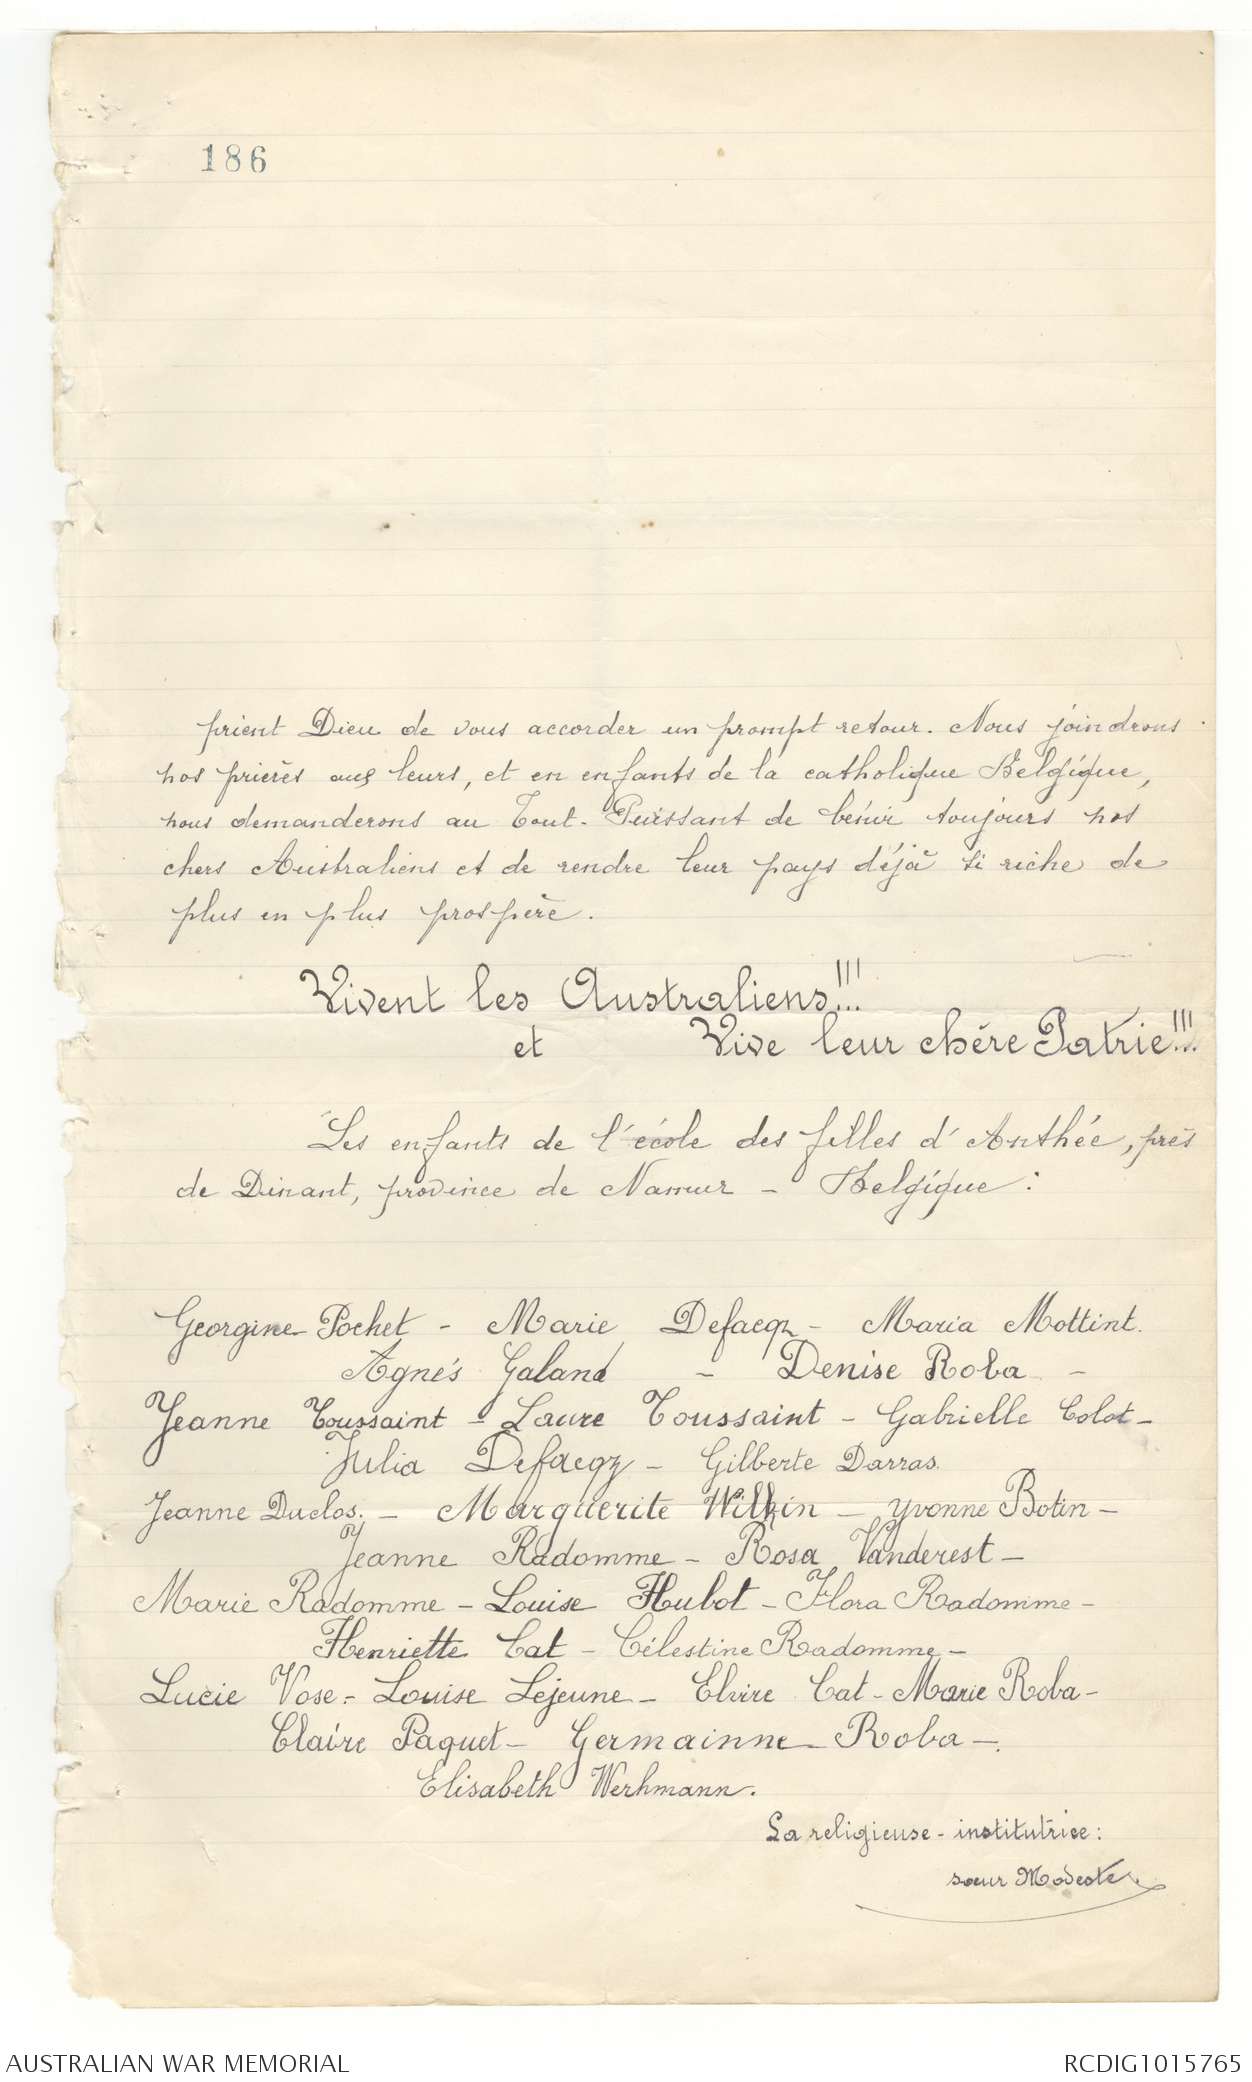 186
prient Dieu de vous accorder un prompt retour. Nous joindrons
nos prières aux leurs, et en enfants de la catholique Belgique,
nous demanderons au Tout-Puissant de bénir toujours nos
chers Australiens et de rendre leur pays déjà si riche de
plus en plus prospère.
Vivent les Australiens!!!
et Vive leur chère Patrie!!!
Les enfants de l'école des filles d'Anthée, près
de Dinant, province de Namur - Belgique:
Georgine Pochet - Marie Defacqz - Maria Mottint.
Agnès Galand - Denise Roba -
Jeanne Toussaint - Laure Toussaint - Gabrielle Colot -
Julia Defacqz - Gilberte Darras.
Jeanne Duclos. - Marguerite Wilkin - Yvonne Botin -
Jeanne Radomme - Rosa Vanderest -
Marie Radomme - Louise Hubot - Flora Radomme -
Henriette Cat - Célestine Radomme -
Lucie Vose - Louise Lejeune - Elvire Cat - Marie Roba -
Claire Paquet - Germainne Roba -.
Elisabeth Werhmann.
La religieuse-institutrice:
sœur Modeste.
AUSTRALIAN WAR MEMORIAL
RCDIG1015765